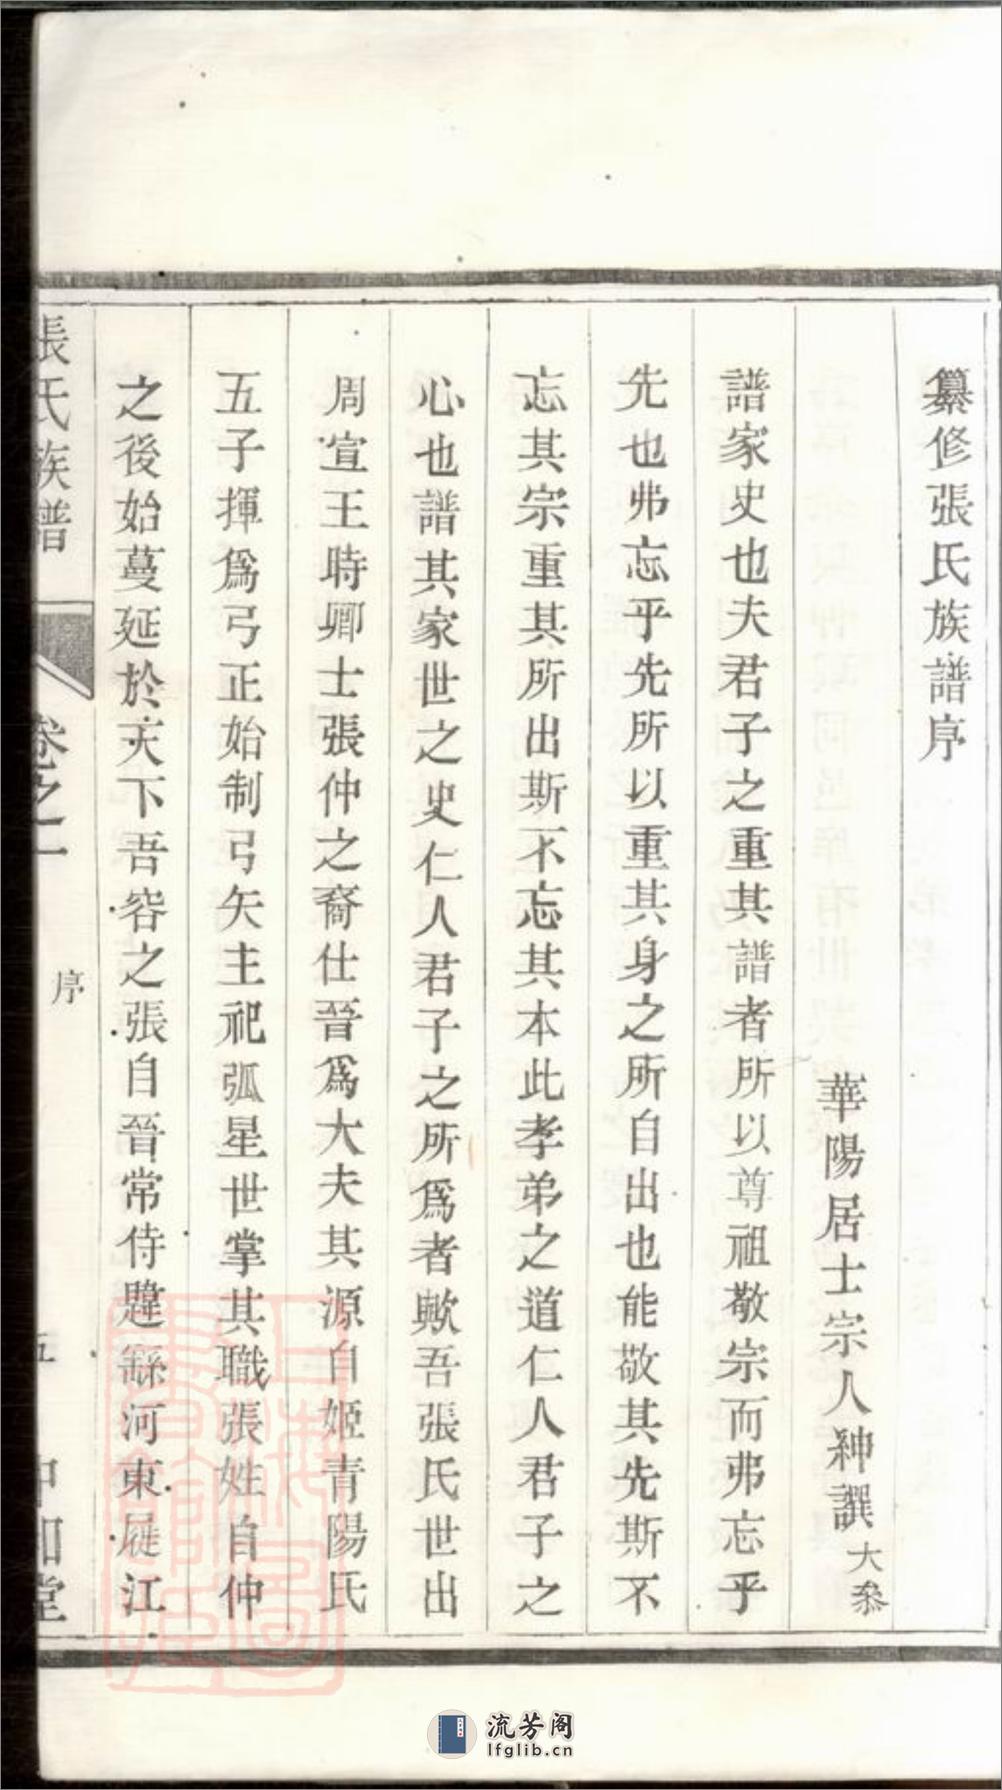 纂修張氏族譜序
華陽居士宗人紳譔大叅
譜家史也夫君子之重其譜者所以尊祖敬宗而弗忘乎
先也弗忘乎先所以重其身之所自出也能敬其先斯不
忘其宗重其所出斯不忘其本此孝弟之道仁人君子之
心也譜其家世之史仁人君子之所爲者歟吾張氏世出
周宣王時卿士張仲之裔仕晉爲大夫其源自姬青陽氏
五子揮爲弓正始制弓矢主祀弧星世掌其職張姓自仲
之後始蔓延於天下吾容之張自晉常侍韙繇河東屣江
張氏族譜
卷之一
序
五
中和堂
流芳阁
lfglib.cn